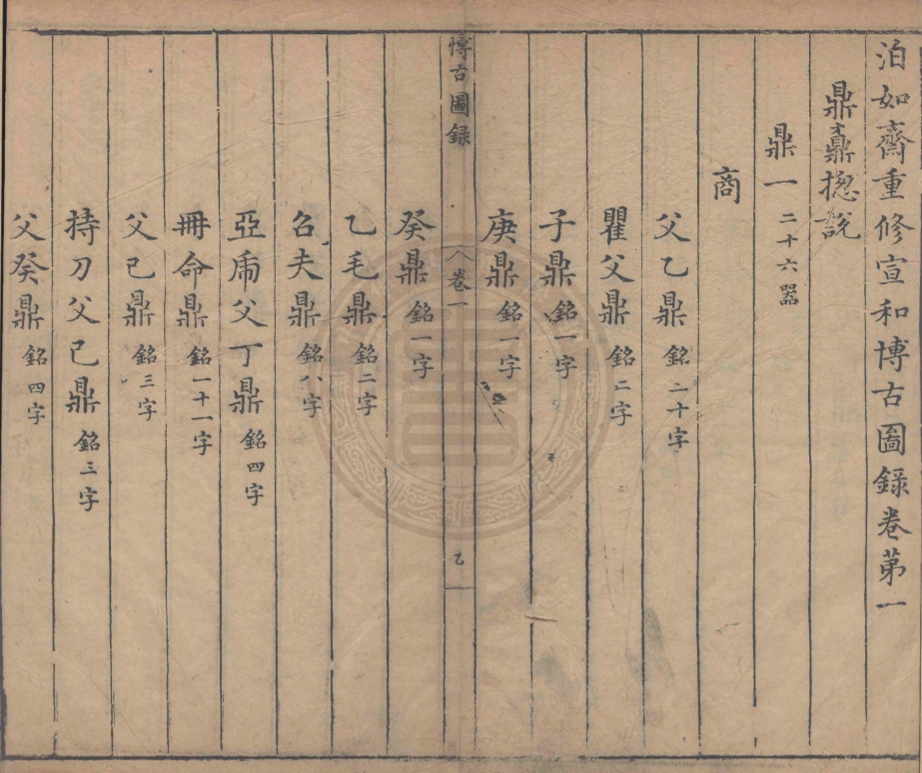 泊如齋重修宣和博古圖錄卷第一
鼎鼐揔說
鼎一 二十六器
商
父乙鼎 銘二十字
瞿父鼎 銘二字
子鼎 銘一字
庚鼎 銘一字
博古圖錄 卷一 乙
癸鼎 銘一字
乙毛鼎 銘二字
召夫鼎 銘八字
亞虎父丁鼎 銘四字
冊命鼎 銘一十一字
父己鼎 銘三字
持刀父己鼎 銘三字
父癸鼎 銘四字